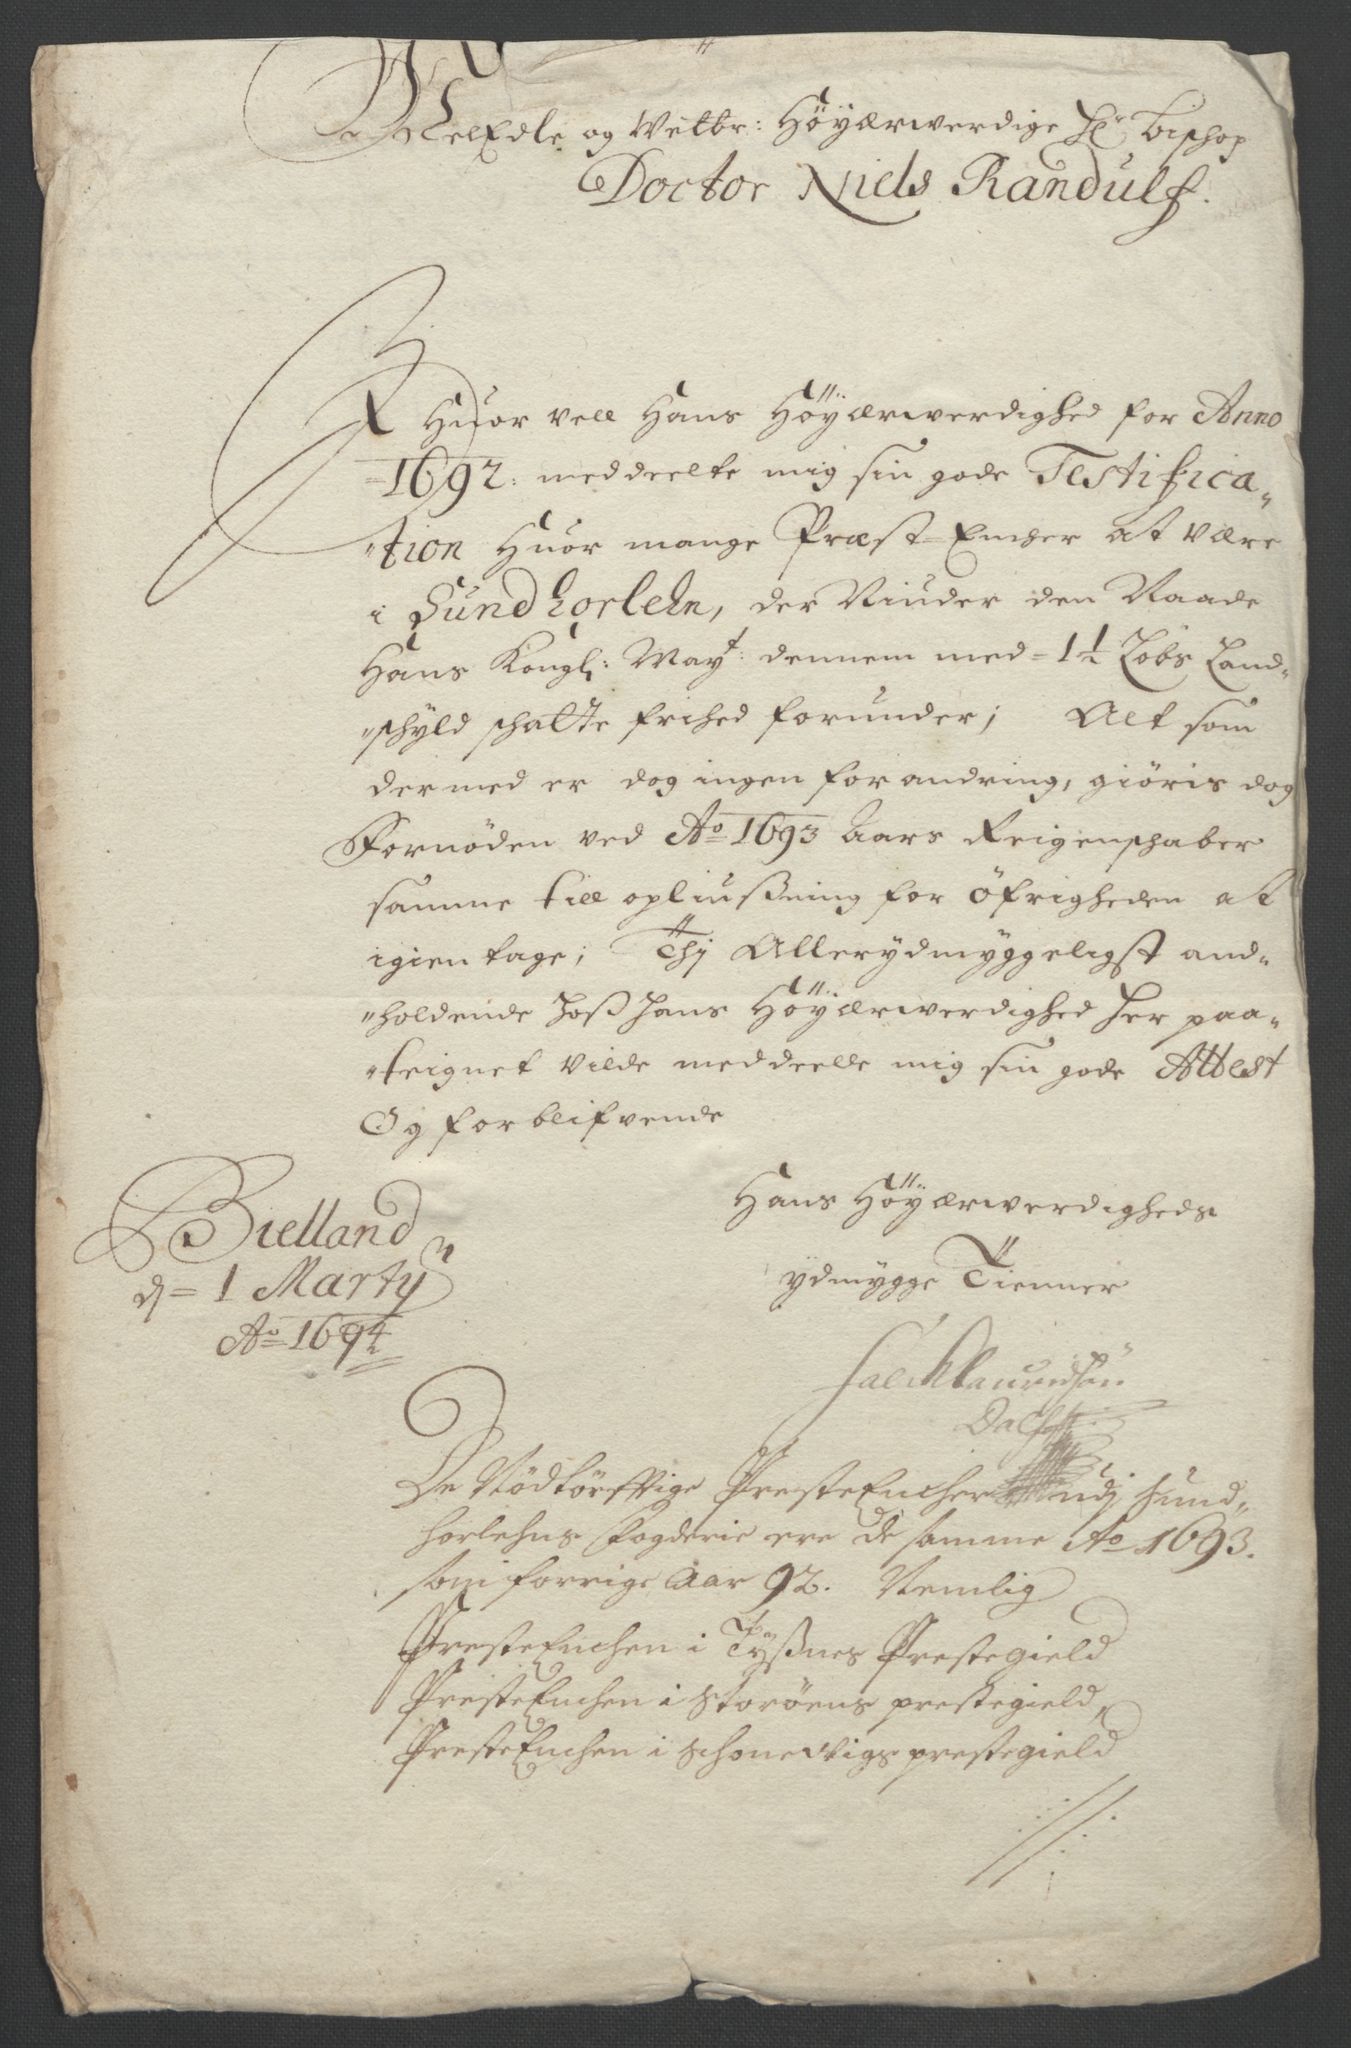 WelEdle og Velbr: Höyærwerdige Hr Bischop
Doctor Niels Randulf.
Huor vell Hans Höyærwerdighed for Anno
1692: meddeelte mig sin gode Testifica„
„tion Huor mange Præst Encher at være
i Sundhorlehn, der Niuder den Naade
Hans Kongl: Mayt: dennem med = 1½ Løbs Land„
„schyld schatte frihed forunder; Alt som
dermed er dog ingen forandring, giøris dog
Fornøden ved Ao 1693 Aars Reigenschaber
samme till opliusning for öfrigheden at
igientage; Thj Allerydmyggeligst and„
„holdende hoß hans Höyærwerdighed her paa„
„teignet vilde meddeelle mig sin gode Attest
Og forblifvende
Hans Höyærwerdigheds
ydmygge Tienner
Bielland
d = 1 Marty
Ao 1694
Falch Lauridsön
De Nödtörfftige PresteEncher udj Sund„
horlehns fogderie ere de samme Ao 1693.
som forrige Aar 92. Nemlig
PresteEnchen i Tyßnes Prestegield
PresteEnchen i Storöens prestegield,
PresteEnchen i Schonevigs prestegield